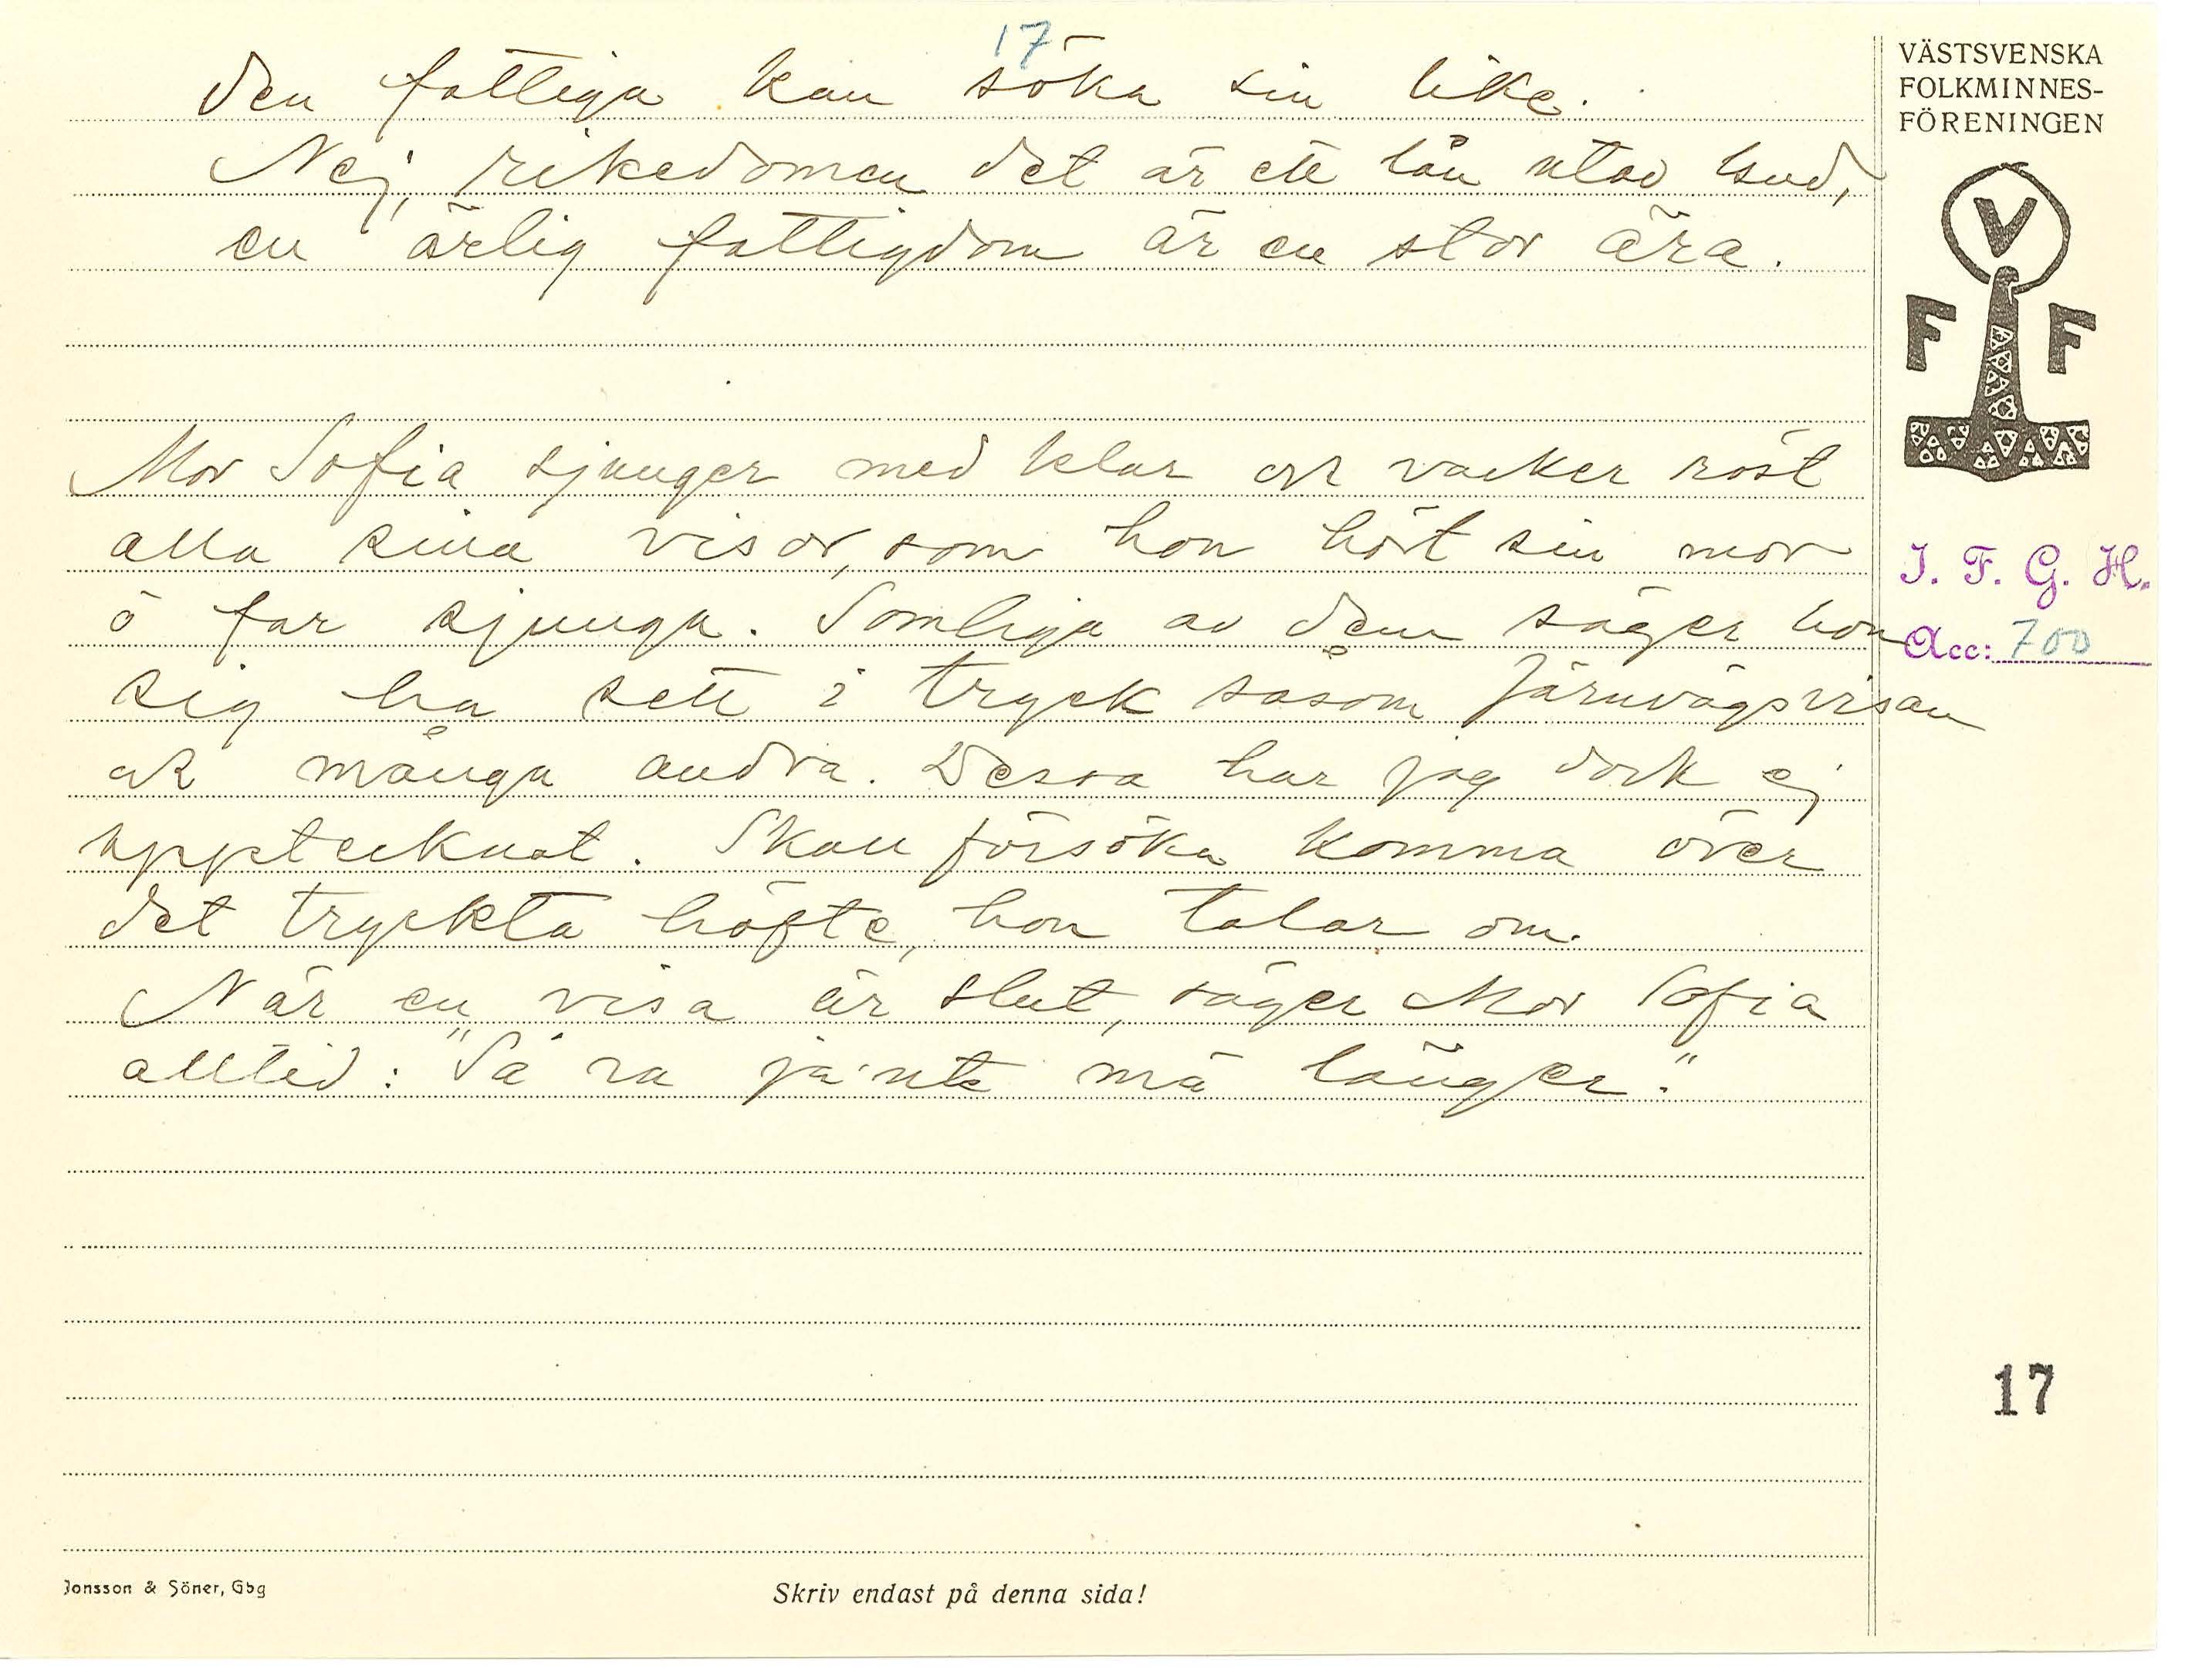 17
den fattiga kan söka sin like.
Nej, rikedomen det är ett lån utav Gud,
en ärlig fattigdom är en stor ära.
Mor Sofia sjunger med klar och vacker röst
alla sina visor, som hon hört sin mor
ö far sjunga. Somliga av dem säger hon
sig ha sett i tryck såsom Järnvägsvisan
och många andra. Dessa har jag dock ej
upptecknat. Skall försöka komma över
det tryckta häfte, hon talar om.
När en visa är slut, säger Mor Sofia
alltid: "Så va ja'nte mä länger."
VÄSTSVENSKA
FOLKMINNES-
FÖRENINGEN
V
F F
I. F. G. H.
Acc: 700
17
Jonsson & Söner, Gbg
Skriv endast på denna sida!